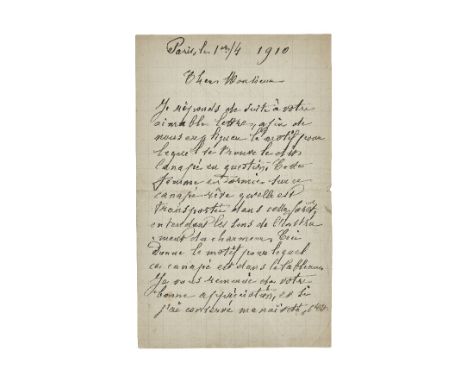 Paris, le 1er/4 1910
Cher Monsieur
Je réponds de suite à votre
aimable lettre, afin de
vous expliquer le motif pour
lequel se trouve le dit
canapé en question, Cette
femme endormie sur ce
canapé rêve qu'elle est
transportée dans cette forêt,
entendant les sons de l'instru
-ment du charmeur. Ceci
donne le motif pour lequel
ce canapé est dans le tableau.
Je vous remercie de votre
bonne appréciation, et si
j'ai conservé ma naïveté,